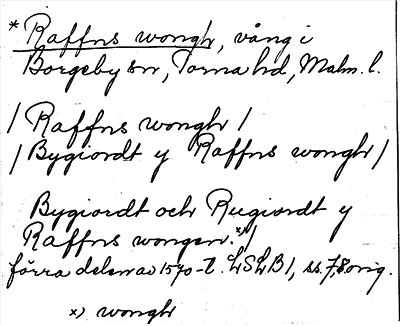 * Raffns wongh, vång i
Borgeby sn, Torna hd, Malm. l.
/ Raffns wongh /
/ Bygiordt y Raffns wongh /
Bygiordt och Rugiordt y
Raffns wongen. x) /
förra delen av 1570-t. LSLB 1, ss. 7, 8 orig.
x) wongh